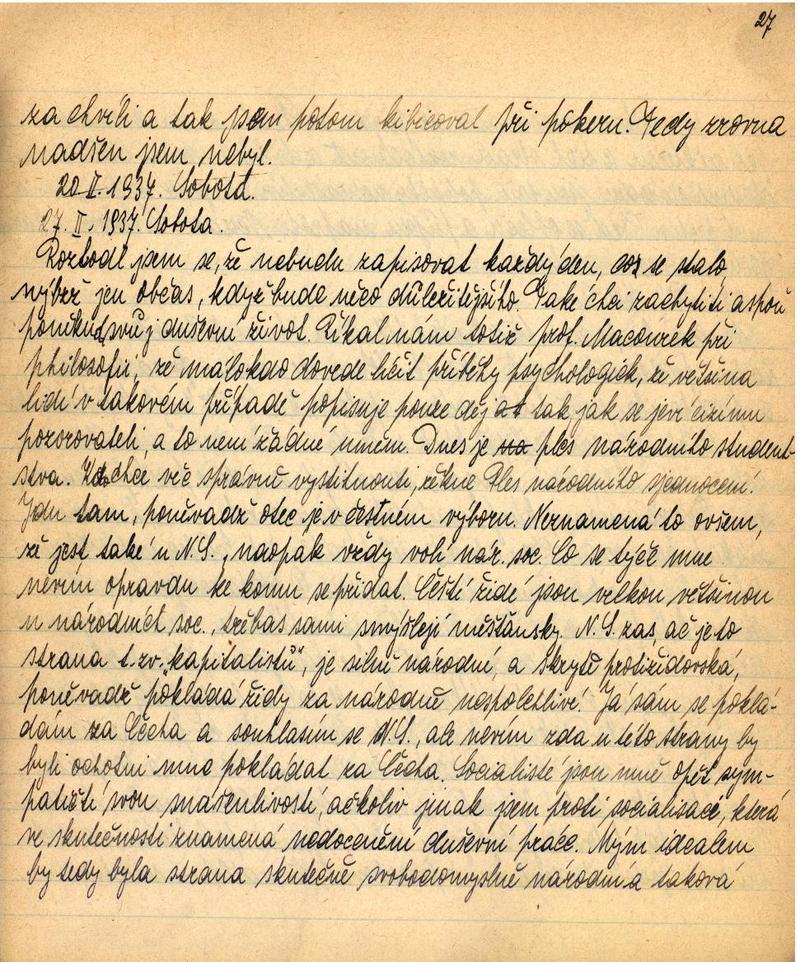 27
za chvíli a tak jsem potom kibicoval při pokeru. Tedy zrovna
nadšen jsem nebyl.
20 II. 1937. Sobota.
27. II. 1937. Sobota.
Rozhodl jsem se, že nebudu zapisovat každý den, co se stalo
nýbrž jen občas, když bude něco důležitějšího. Také chci zachytiti aspoň
poněkud svůj duševní život. Říkal nám totiž prof. Macourek při
philosofii, že málokdo dovede líčit příběhy psychologick, že většina
lidí v takovém případě popisuje pouze děj tak jak se jeví cizímu
pozorovateli, a to není žádné umění. Dnes je ples národního student-
stva. Kdo chce věc správně vystihnouti, řekne Ples národního sjednocení.
Jdu tam, poněvadž otec je v čestném výboru. Neznamená to ovšem,
že jest také u N.S., naopak vždy volí nár. soc. Co se týče mne
nevím opravdu ke komu se přidat. Čeští židé jsou velkou většinou
u národních soc., třebas sami smýšlejí měšťánsky. N.S. zas, ač je to
strana t. zv. „kapitalistů", je silně národní, a skrytě protižidovská,
poněvadž pokládá židy za národně nespolehlivé. Já sám se poklá-
dám za Čecha a souhlasím se N.S., ale nevím zda u této strany by
byli ochotni mne pokládat za Čecha. Socialisté jsou mně opět sym-
patičtí svou snášenlivostí, ačkoliv jinak jsem proti socialisaci, která
ve skutečnosti znamená nedocenění duševní práce. Mým idealem
by tedy byla strana skutečně svobodomyslně národní a taková